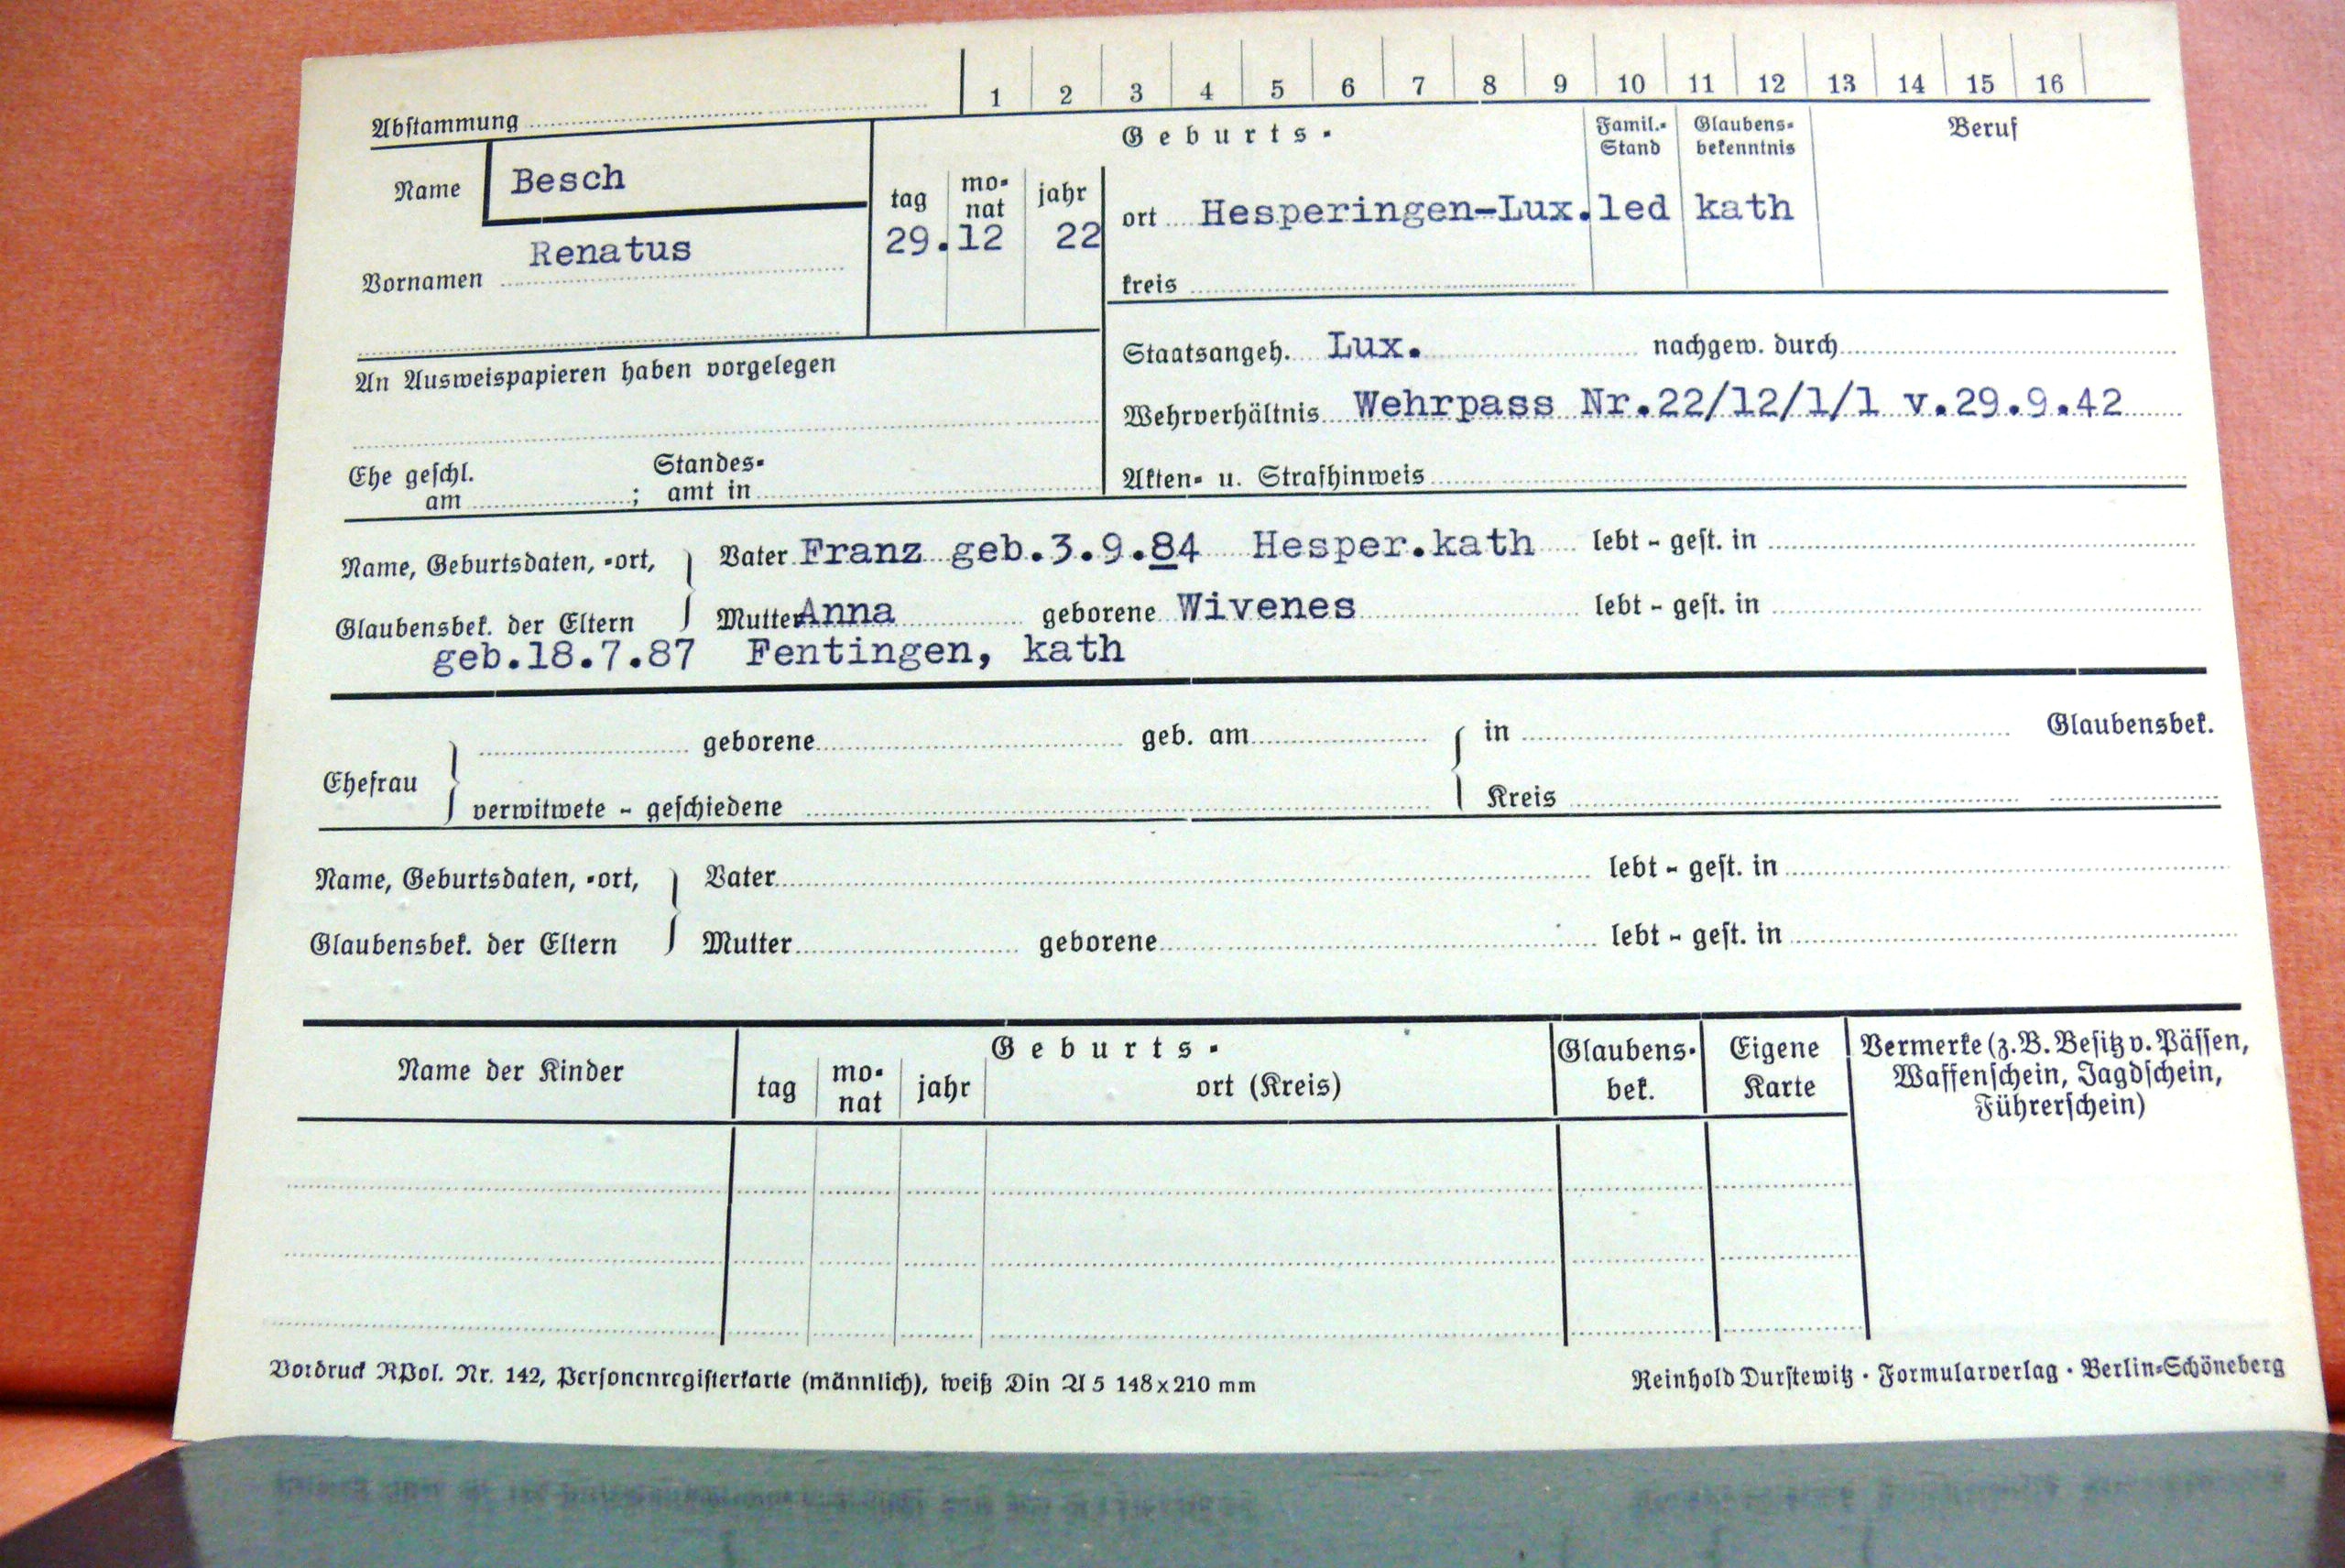 1 2 3 4 5 6 7 8 9 10 11 12 13 14 15 16
Abstammung
Name Besch
Vornamen Renatus
Geburts-
tag monat jahr
29.12 22
ort Hesperingen-Lux.
kreis
Famil.-Stand
led
Glaubens-bekenntnis
kath
Beruf
An Ausweispapieren haben vorgelegen
Staatsangeh. Lux. nachgew. durch
Wehrverhältnis Wehrpass Nr.22/12/1/1 v.29.9.42
Ehe geschl. am ; Standes-amt in
Akten- u. Strafhinweis
Name, Geburtsdaten, -ort, Vater Franz geb.3.9.84 Hesper.kath lebt - gest. in
Glaubensbek. der Eltern Mutter Anna geborene Wivenes lebt - gest. in
geb.18.7.87 Fentingen, kath
geborene geb. am in Glaubensbek.
Ehefrau
verwitwete - geschiedene Kreis
Name, Geburtsdaten, -ort, Vater lebt - gest. in
Glaubensbek. der Eltern Mutter geborene lebt - gest. in
Name der Kinder
Geburts-
tag mo-nat jahr ort (Kreis)
Glaubens-bek.
Eigene Karte
Vermerke (z. B. Besitz v. Pässen,
Waffenschein, Jagdschein,
Führerschein)
Vordruck RPol. Nr. 142, Personenregisterkarte (männlich), weiß Din A 5 148x210 mm
Reinhold Durstewitz · Formularverlag · Berlin-Schöneberg